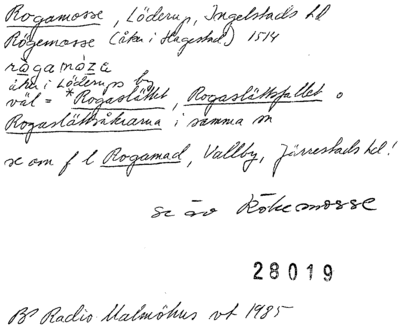 Rogamosse, Löderup, Ingelstads hd
Rögemosse (åker i Hagestad) 1514
rågamåza
åker i Löderups by
väl = *Rogaslättet, Rogaslättsfallet o
Rogaslättsåkrarna i samma sn
se om f l Rogamad, Vallby, Järrestads hd!
se äv Rökemosse
28019
Br Radio Malmöhus vt 1985